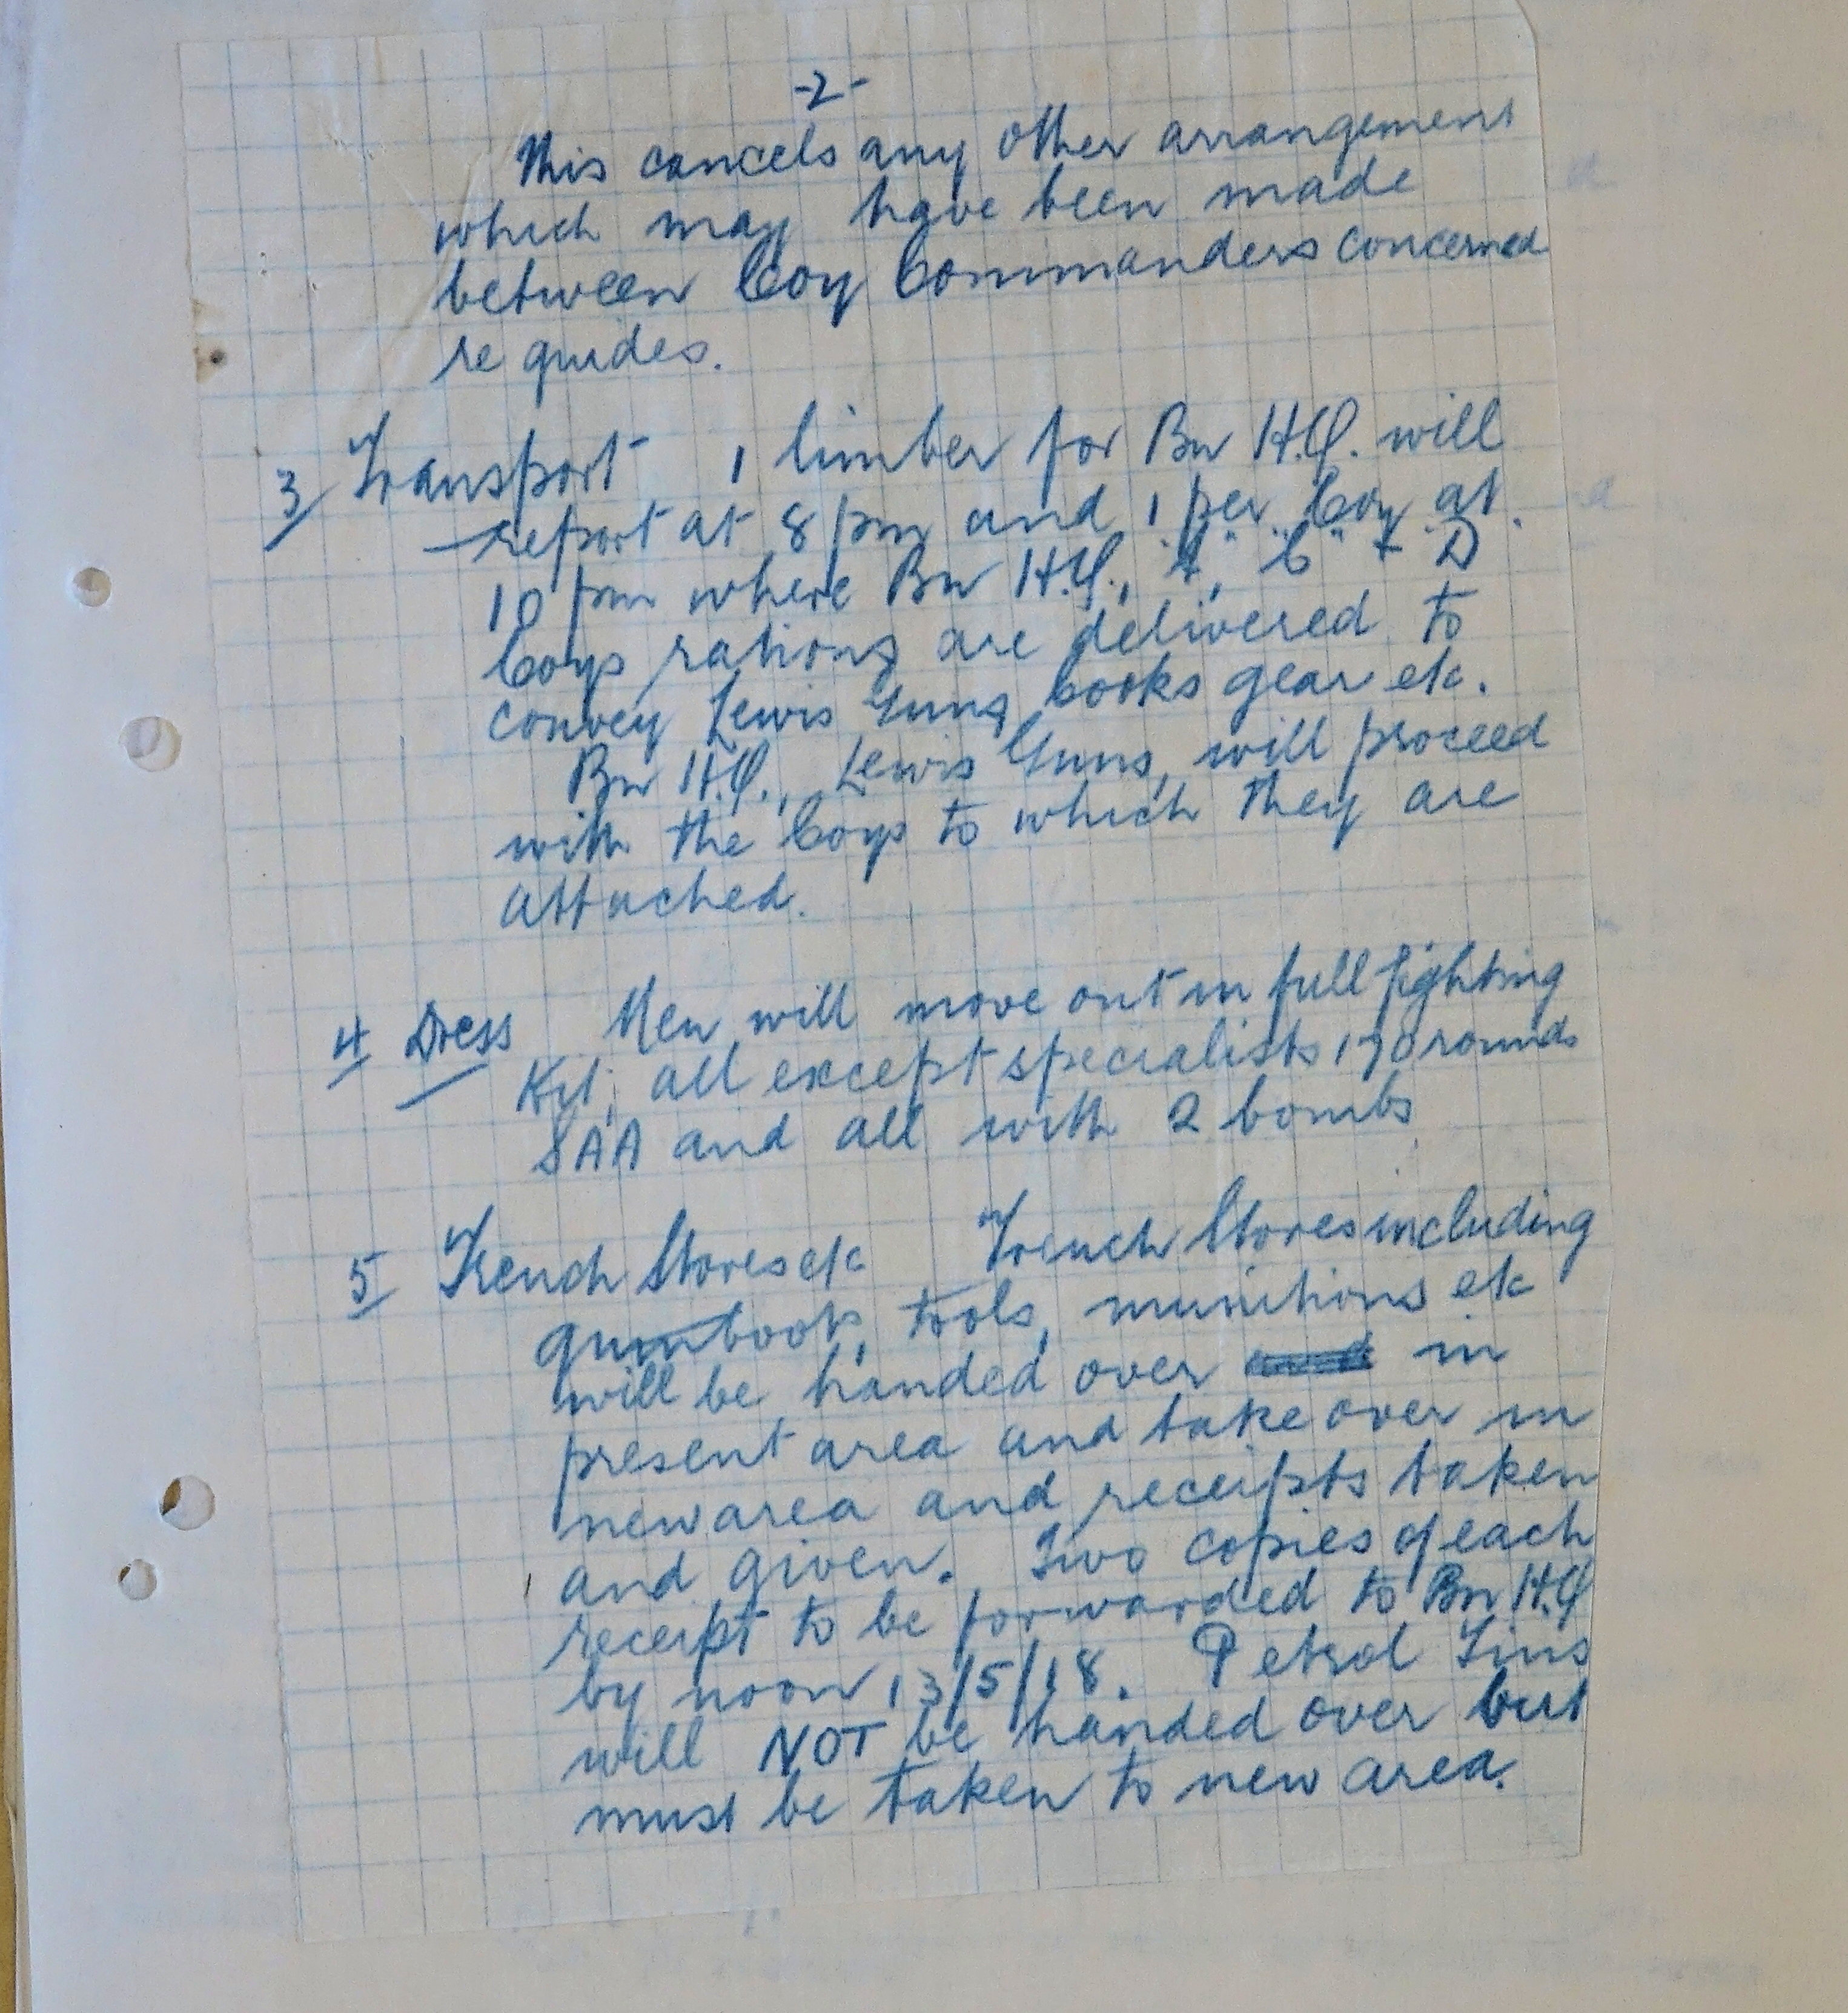 -2-
This cancels any other arrangement
which may have been made
between Coy Commanders concerned
re guides.
3/ Transport 1 limber for Bn H.Q. will
report at 8 pm and 1 per Coy at
10 pm where Bn H.Q., "A", "C" + "D"
Coys rations are delivered to
convey Lewis Guns, Cooks gear etc.
Bn H.Q., Lewis Guns, will proceed
with the Coys to which they are
attached.
4/ Dress Men will move out in full fighting
Kit, all except specialists 170 rounds
SAA and all with 2 bombs
5/ Trench Stores etc Trench Stores including
gumboots, tools, munitions etc
will be handed over and in
present area and take over in
new area and receipts taken
and given. Two copies of each
receipt to be forwarded to Bn H.Q
by noon 13/5/18. Petrol Tins
will NOT be handed over but
must be taken to new area.